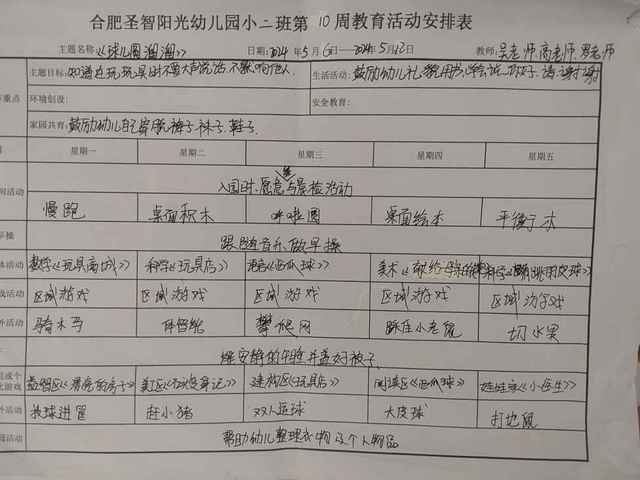 合肥圣智阳光幼儿园小二班第10周教育活动安排表
主题名称《球儿圆溜溜》 日期:2024年5月6日—2024年5月12日 教师:吴老师、高老师、罗老师
主题目标:知道在玩玩具时不要大声说话,不影响他人. 生活活动:鼓励幼儿礼貌用语,学会说,你好、请、谢谢
重点 环境创设: 安全教育:
家园共育:鼓励幼儿自己穿脱裤子、袜子、鞋子.
星期一 星期二 星期三 星期四 星期五
入园时,愿意与晨检活动
活动 慢跑 桌面积木 呼啦圈 桌面绘本 平衡
早操 跟随音乐做早操
活动 数学《玩具商城》 科学《玩具店》 语言《西瓜球》 美术 科学
活动 区域游戏 区域游戏 区域游戏 区域游戏 区域游戏
活动 骑木马 攀爬网 小老鼠 切水果
能安静的午睡并盖好被子.
或个 游戏 益智区 美工区 建构区《玩具店》 阅读区《西瓜球》 娃娃家《小医生》
活动 投球进筐 赶小猪 双人运球 大皮球 打地鼠
活动 帮助幼儿整理衣物及个人物品